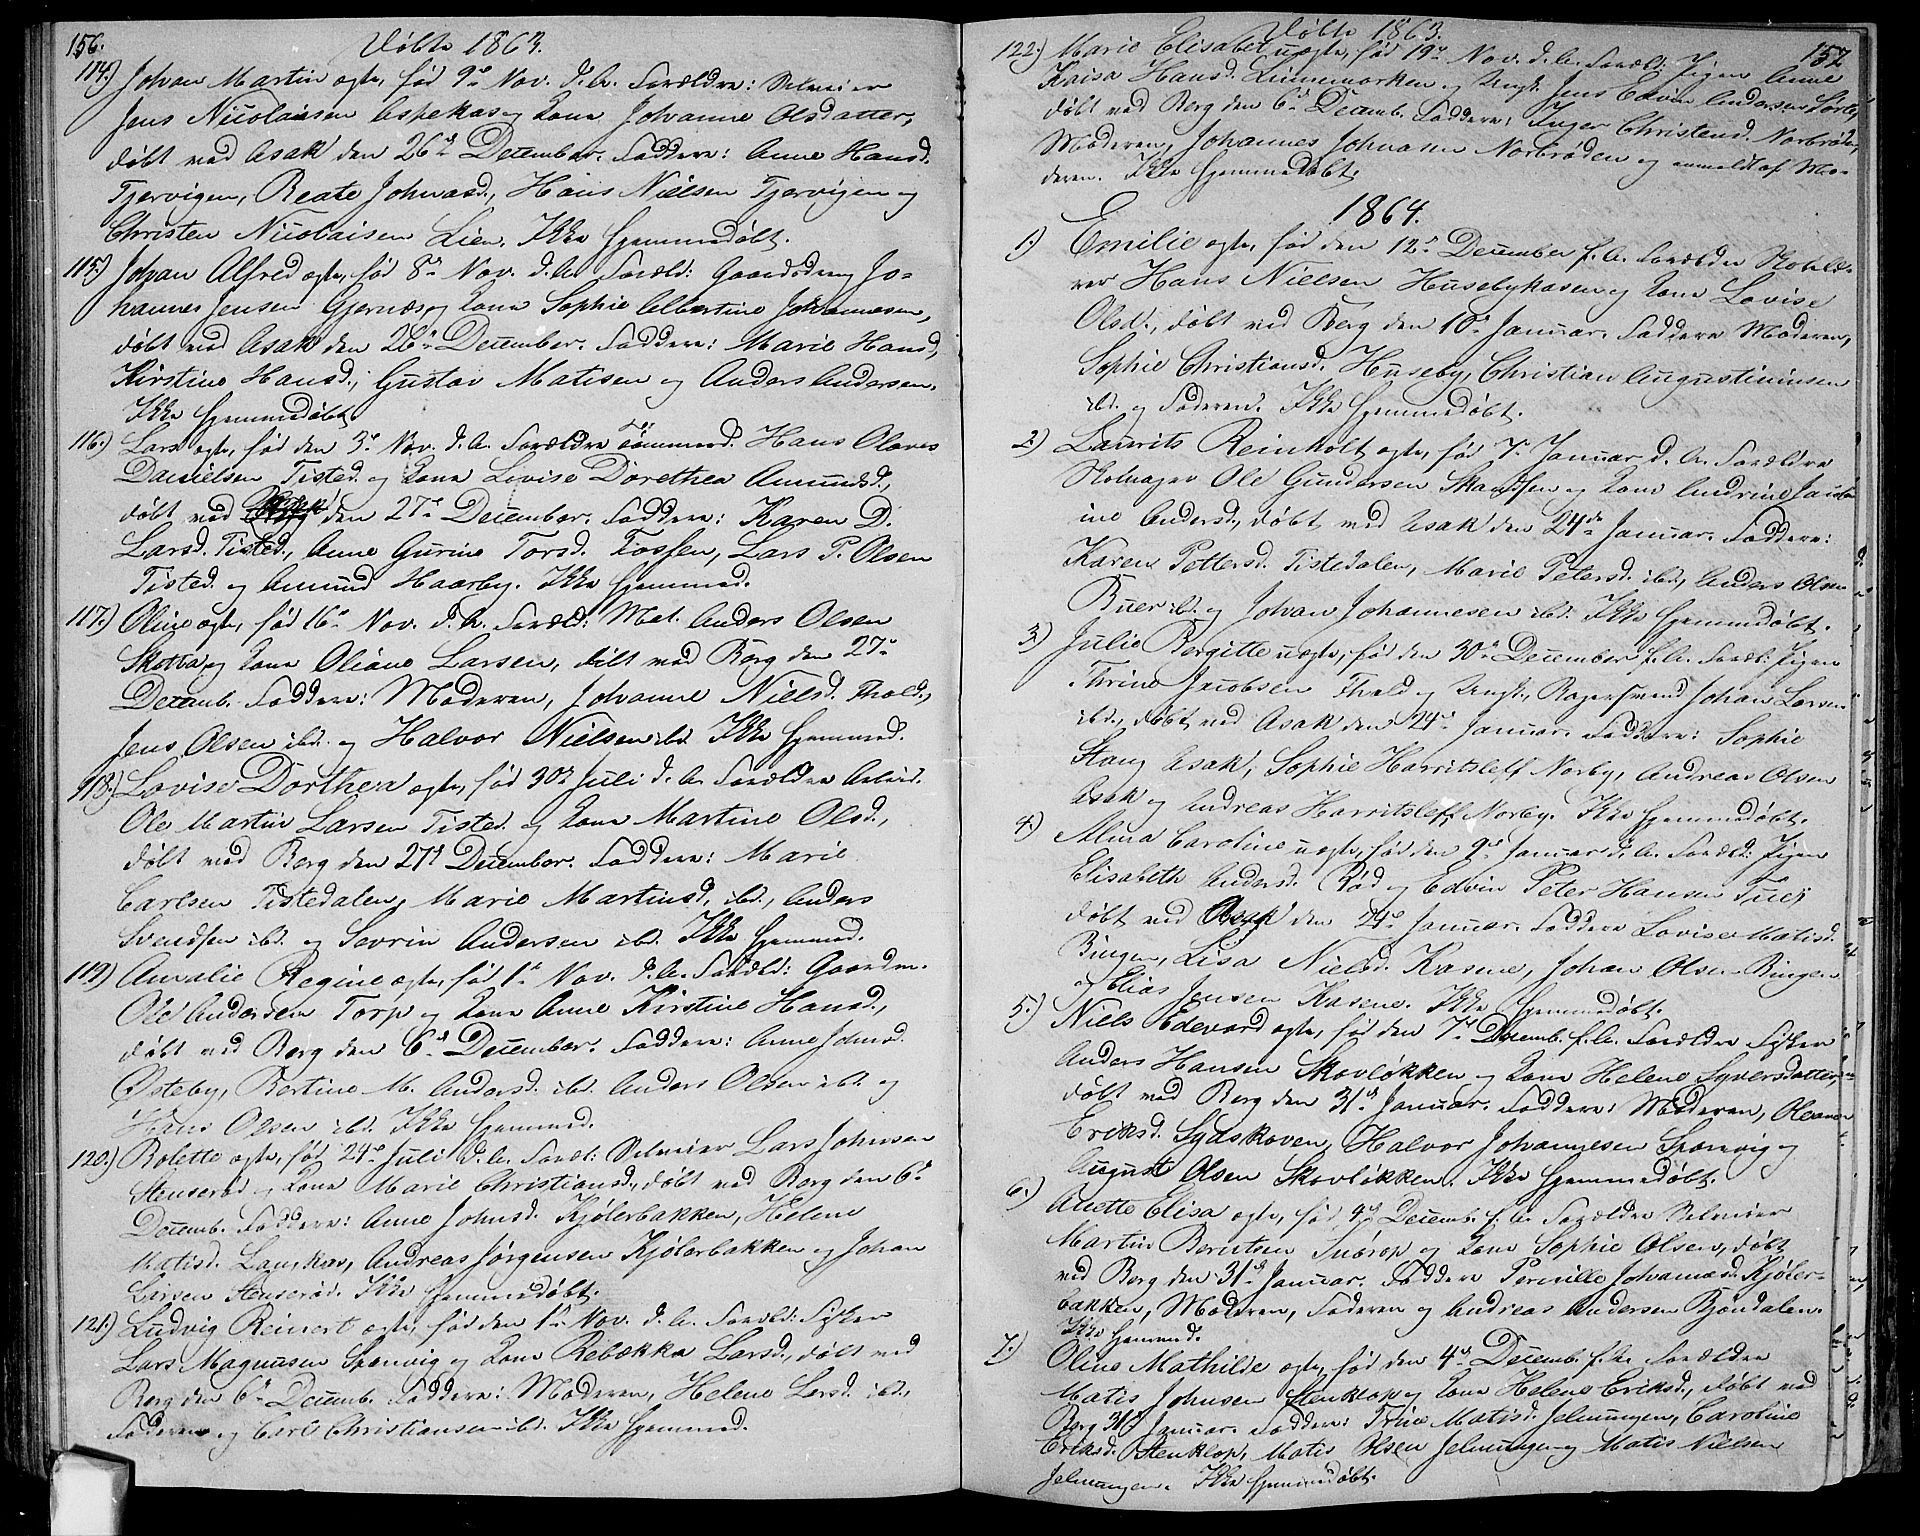 156.
Døbte 1863.
114.) Johan Martin ægte, født 9de Nov. d. A. Forældre: Selveier
Jens Nicolaisen Aspekas og Kone Johanne Olsdatter,
døbt ved Asak den 26de December. Faddere: Anne Hansd.
Tjervigen, Beate Johnasd., Hans Nielsen Tjervigen og
Christen Nicolaisen Lien. Ikke hjemmedøbt.
115.) Johan Alfred ægte, født 8de Nov. d. A. Foræld: Gaardbrug Jo-
hannes Jensen Gjernæs og Kone Sophie Albertine Johannesen,
døbt ved Asak den 26de December. Faddere: Marie Hansd,
Kirstine Hansd., Gustav Matisen og Anders Andersen.
Ikke hjemmedøbt.
116.) Lars ægte, født den 3de Nov. d. A. Forældre Tømmerd. Hans Olaves
Danielsen Tisted. og Kone Lovise Dorethea Amundsd.,
døbt ved den 27de December. Faddere: Karen D.
Larsd. Tisted., Anne Gurine Torsd. Fossen, Lars P. Olsen
Tisted. og Amund Haarby. Ikke hjemmed.
117.) Oline ægte, født 16de Nov. d. A. Foræld: Mat. Anders Olsen
Skotta og Kone Oliane Larsen, døbt ved Berg den 27de
Decemb. Faddere: Moderen, Johanne Nielsd. Thold.,
Jens Olsen ibd. og Halvor Nielsen ibd. Ikke hjemmed.
118.) Lovise Dorthea ægte, født 30te Juli d. A. Forældre Arbeid.
Ole Martin Larsen Tisted. og Kone Martine Olsd.,
døbt ved Berg den 27de December. Faddere: Marie
Carlsen Tistedalen, Marie Martinsd. ibd., Anders
Svendsen ibd. og Sevrin Andersen ibd. Ikke hjemmed.
119.) Amalie Regine ægte, født 1ste Nov. d. A. Foræld: Gaardm.
Ole Andersen Torp og Kone Anne Kirstine Hansd.,
døbt ved Berg den 6te December. Faddere: Anne Johnsd.
Østeby, Bertine M. Andersd. ibd. Anders Olsen ibd. og
Hans Olsen ibd. Ikke hjemmed.
120.) Bolette ægte, født 24de Juli d. A. Foræld: Selveier Lars Johnsen
Stenserød og Kone Marie Christiansd., døbt ved Berg den 6te
Decemb. Faddere: Anne Johnsd. Kjølerbakken, Helene
Matisd. Andreas Jørgensen Kjølerbakken og Johan
Larsen Stenserød. Ikke hjemmedøbt.
121.) Ludvig Reinert ægte, født den 1ste Nov. d. A. Foræld: Fisker
Lars Magnusen Sponvig og Kone Rebækka Larsd., døbt ved
Berg den 6te Decemb. Faddere: Moderen, Helene Larsd. ibd.,
Faderen og Carl Christiansen ibd. Ikke hjemmed.
Døbte 1863.
157
122.) Marie Elisabet uægte, født 19de Nov. d. A. Foræld: Pigen Anne
Kaisa Hansd. Linnemarken og Ungk. Jens Edvin Andersen
døbt ved Berg den 6te Decemb. Faddere: Inger Christensd. Norbrøden,
Moderen, Johannes Johnasen Norbrøden og anmeldt af Mo-
deren. Ikke hjemmedøbt.
1864.
1.) Emilie ægte, født den 12te December f. A. Forældre
Hans Nielsen Husebykasen og Kone Lovise
Olsd., døbt ved Berg den 10de Januar. Faddere Moderen,
Sophie Christiansd. Huseby, Christian Augustinusen
ibd. og Faderen. Ikke hjemmedøbt.
2.) Laurits Reinholt ægte, født 7de Januar d. A. Forældre
Skomager Ole Gundersen Skandsen og Kone Andrine Jacob-
ine Andersd., døbt ved Asak den 24de Januar. Faddere:
Karen Pettersd. Tistedalen, Marie Petersd. ibd., Anders Olsen
Buer ibd. og Johan Johannesen ibd. Ikke hjemmedøbt.
3.) Julie Bergitte uægte, født den 30te December f. A. Foræld: Pigen
Thrine Jacobsen Thold og Ungk. Bagersvend Johan Larsen
ibd., døbt ved Asak den 24de Januar. Faddere: Sophie
Stang Asak, Sophie Harritsleff Norby, Andreas Olsen
Asak og Andreas Harritsleff Norby. Ikke hjemmedøbt.
4.) Alma Caroline uægte, født den 9de Januar d. A. Foræld: Pigen
Elisabeth Andersd. Rød og Edvin Peter Hansen
døbt ved Asak den 24de Januar. Faddere Lovise Matisd.
Bingen, Lisa Nielsd. Kasene, Johan Olsen Bingen
og Elias Jensen Kasene. Ikke hjemmedøbt.
5.) Niels Edevard ægte, født den 7de Decemb. f. A. Forældre Fisker
Anders Hansen Skovløkken og Kone Helene Syversdatter,
døbt ved Berg den 31te Januar. Faddere: Moderen, Oleanne
Eriksd. Sydskoven, Halvor Johannesen Sponvig og
August Olsen Skovløkken. Ikke hjemmedøbt.
6.) Anette Elisa ægte, født 9de Decemb. f. A. Forældre Selveier
Martin Berntsen og Kone Sophie Olsen, døbt
ved Berg den 31te Januar. Faddere Pernille Johannesd. Kjøler-
bakken, Moderen, Faderen og Andreas Andersen Bjøndalen.
Ikke hjemmed.
7.) Oline Mathilde ægte, født den 4de Decemb. f. A. Forældre
Matis Johnsen Stenklop og Kone Helene Eriksd., døbt ved
Berg 31te Januar. Faddere: Trine Matisd. Jelmungen, Caroline
Eriksd. Stenklop, Matis Olsen Jelmungen og Matis Nielsen
Jelmungen. Ikke hjemmedøbt.